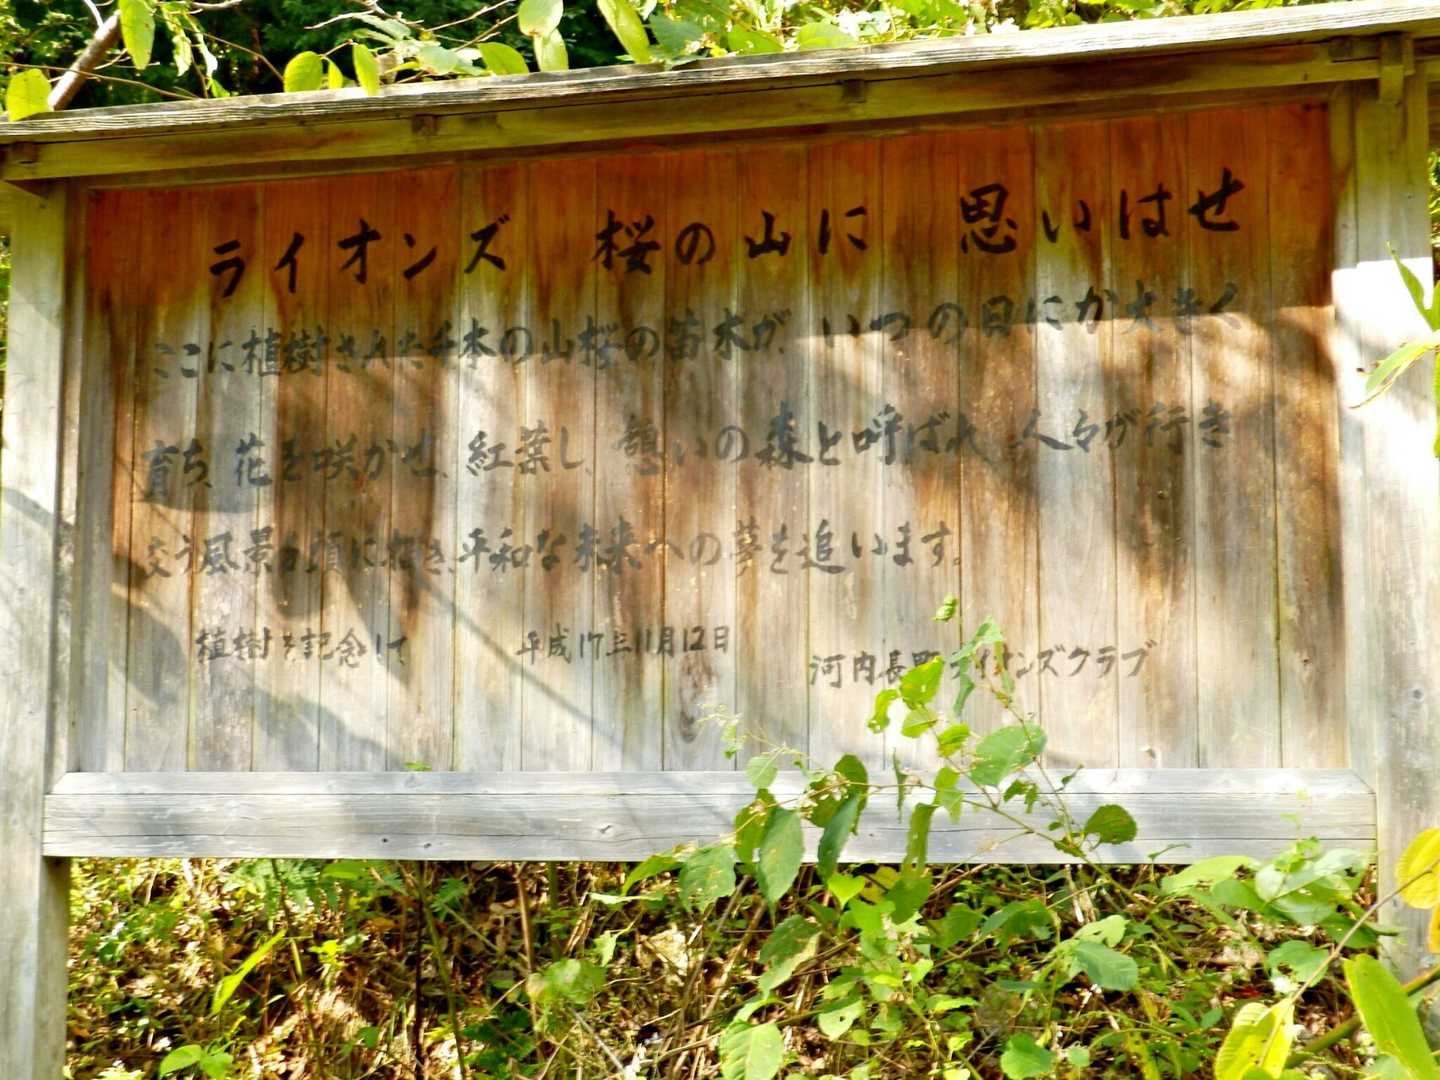 ライオンズ 桜の山に 思いはせ
ここに植樹された千本の山桜の苗木が、いつの日にか大きく
育ち、花を咲かせ、紅葉し、憩いの森と呼ばれ、人々が行き
交う風景を頭に描き、平和な未来への夢を追います。
植樹を記念して 平成17年11月12日 河内長野ライオンズクラブ